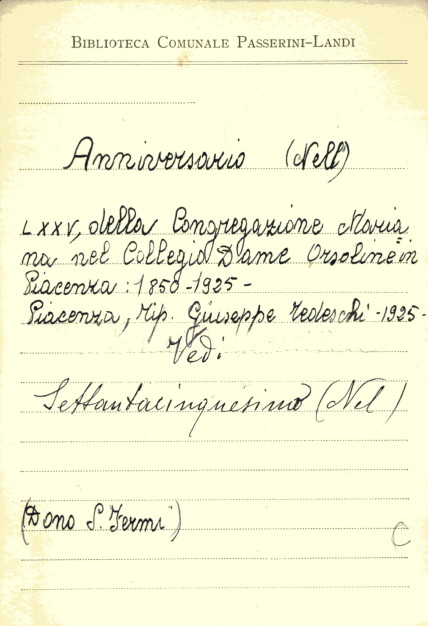 BIBLIOTECA COMUNALE PASSERINI-LANDI
Anniversario (Nell')
LXXV, della Congregazione Maria=
na nel Collegio Dame Orsoline in
Piacenza: 1850-1925-
Piacenza, Tip. Giuseppe Tedeschi-1925-
Vedi
Settantacinquesimo (Nel)
(Dono S. Fermi)
C